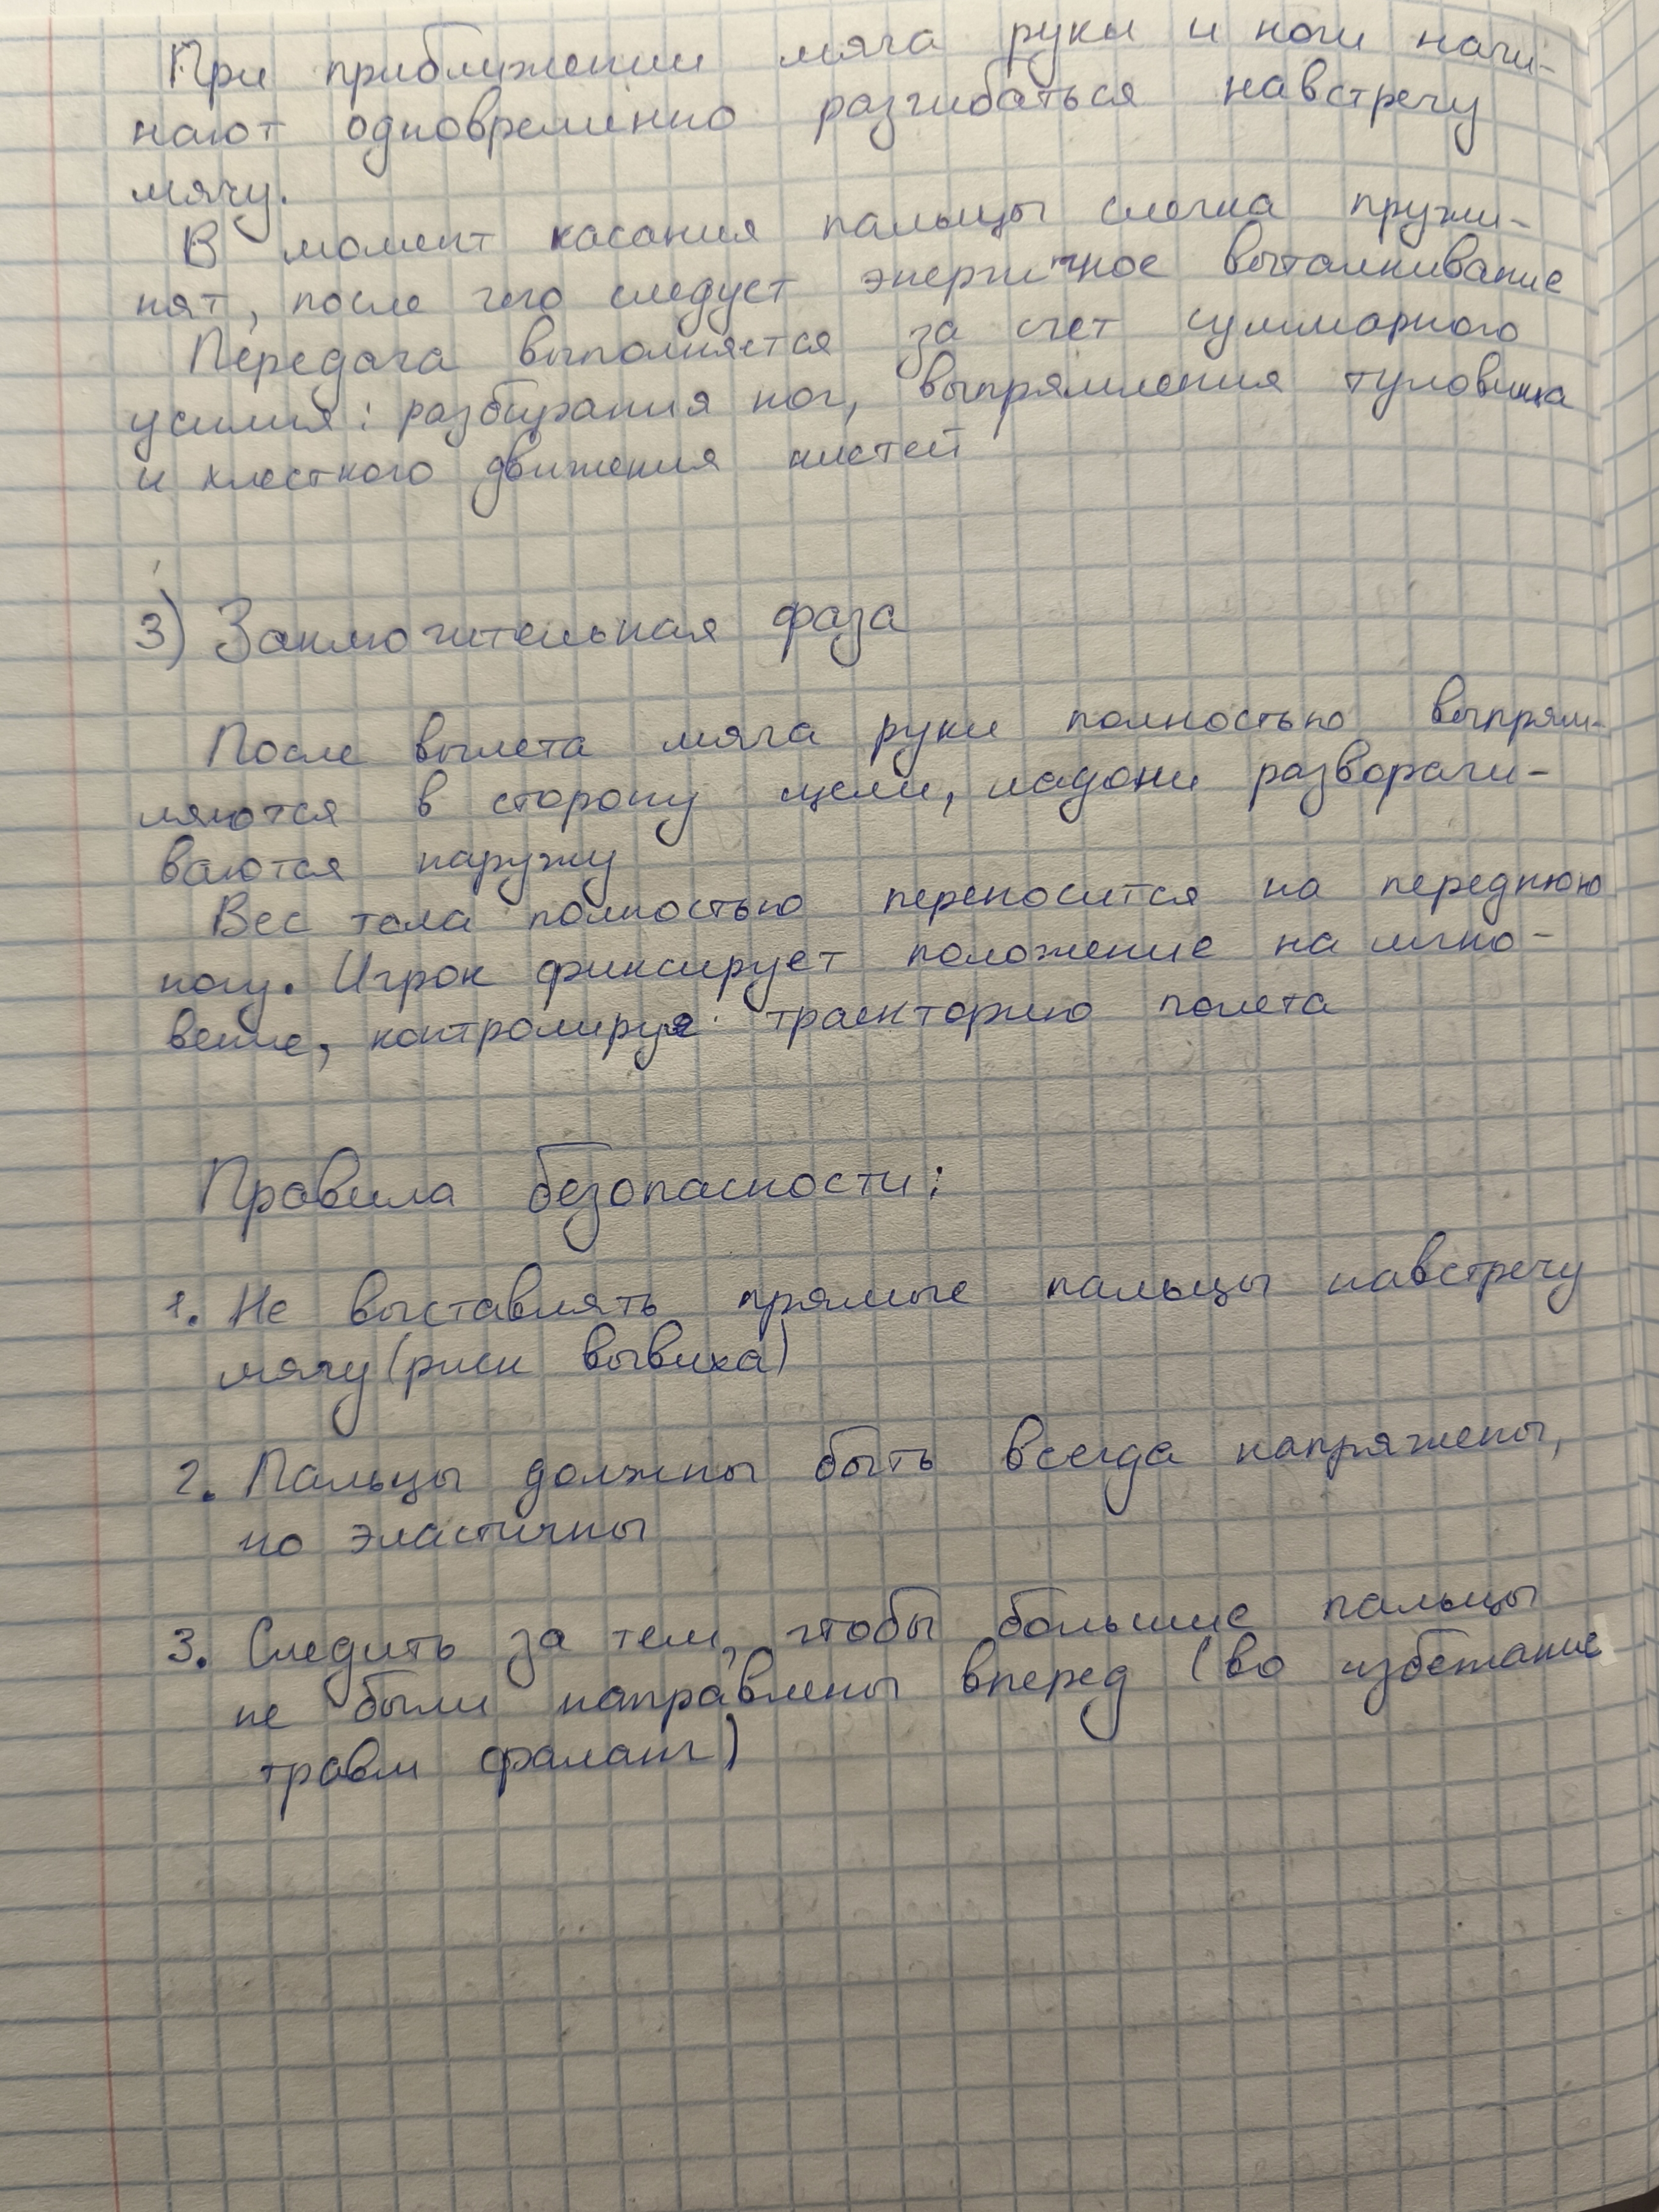 При приближении мяча руки и ноги начи-
нают одновременно разгибаться навстречу
мячу.
В момент касания пальцы слегка пружи-
нят, после чего следует энергичное выталкивание
Передача выполняется за счет суммарного
усилия: разгибания ног, выпрямления туловища
и хлесткого движения кистей
3) Заключительная фаза
После вылета мяча руки полностью выпрям-
ляются в сторону цели, ладони разворачи-
ваются наружу
Вес тела полностью переносится на переднюю
ногу. Игрок фиксирует положение на мгно-
вение, контролируя траекторию полета
Правила безопасности:
1. Не выставлять прямые пальцы навстречу
мячу (риск вывиха)
2. Пальцы должны быть всегда напряжены,
но эластичны
3. Следить за тем, чтобы большие пальцы
не были направлены вперед (во избежание
травм фаланг)